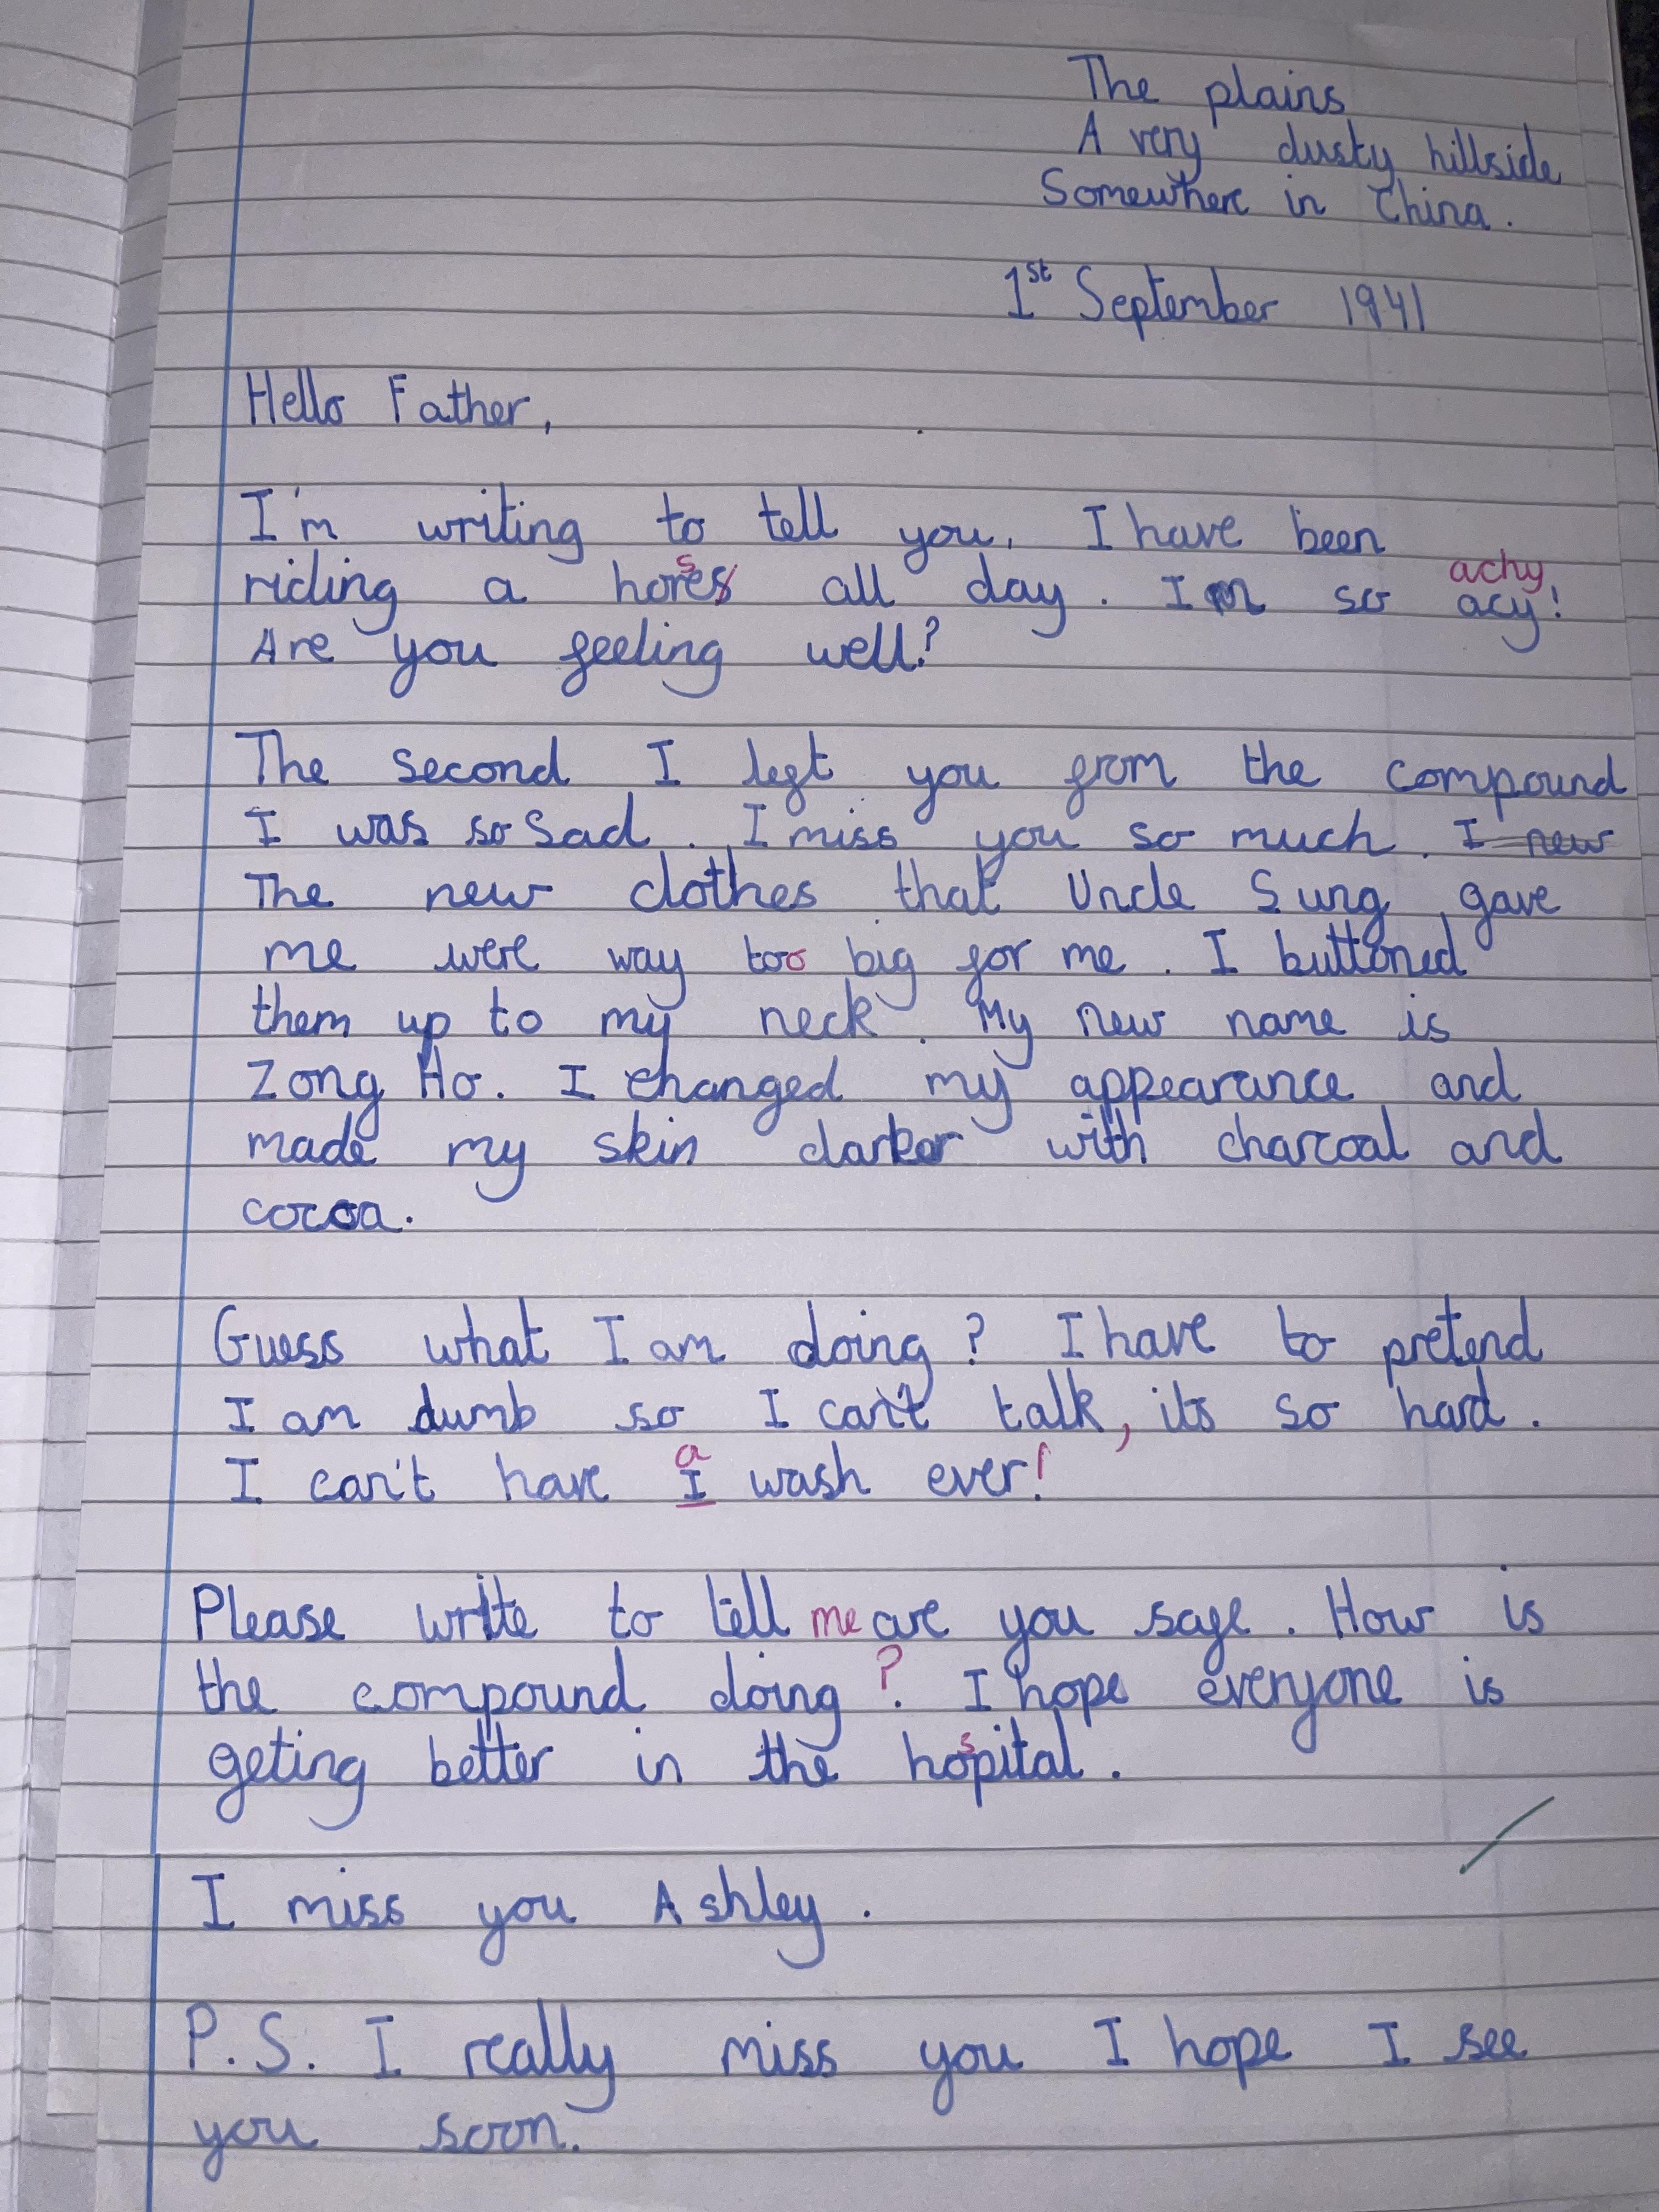 The plains
A very dusty hillside
Somewhere in China.
1st September 1941
Hello Father,
I'm writing to tell you. I have been
achy
riding a horses all day. Im so acy!
Are you feeling well?
The second I left you from the compound
I was so sad. I miss you so much. I new
The new clothes that Uncle Sung gave
me were way too big for me. I buttoned
them up to my neck. My new name is
Zong Ho. I changed my appearance and
made my skin darker with charcoal and
cocoa.
Guess what I am doing? I have to pretend
I am dumb so I can't talk, its so hard.
a
I can't have I wash ever!
Please write to tell me are you safe. How is
the compound doing?. I hope everyone is
geting better in the hospital.
I miss you Ashley.
P.S. I really miss you I hope I see
you soon.